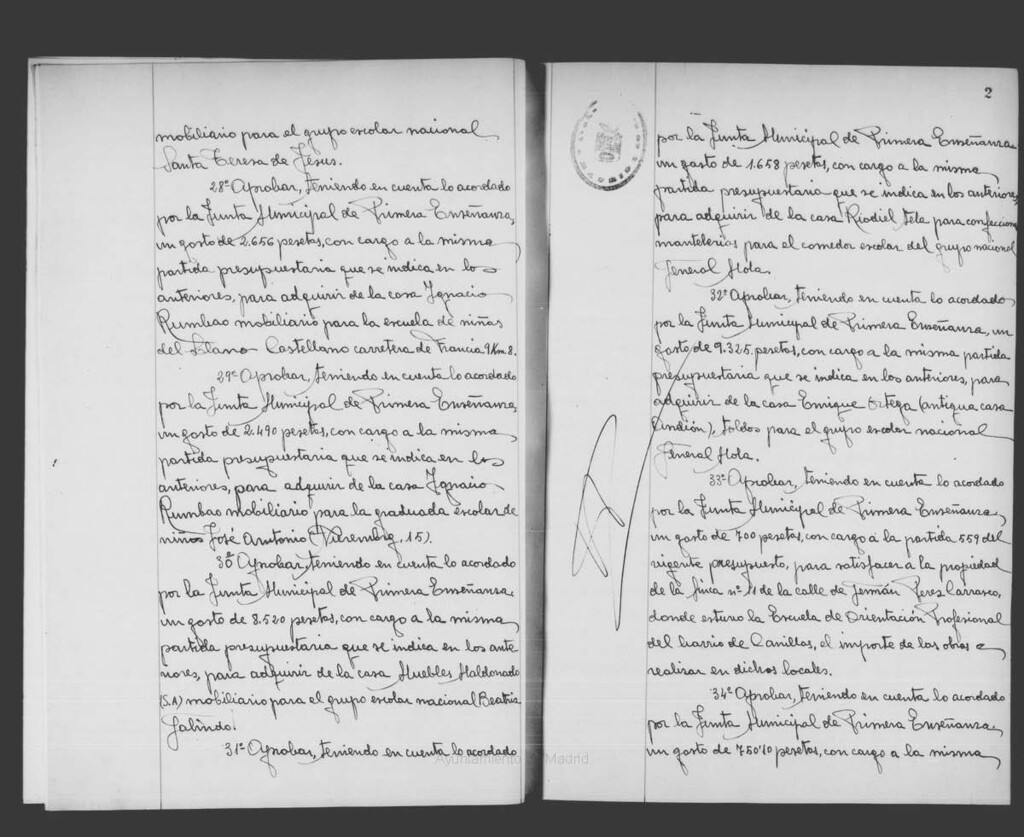 mobiliario para el grupo escolar nacional
Santa Teresa de Jésus.
28º Aprobar, teniendo en cuenta lo acordado
por la Junta Municipal de Primera Enseñanza,
un gasto de 2.656 pesetas, con cargo a la misma
partida presupuestaria que se indica en los
anteriores, para adquirir de la casa Ygnacio
Rumbao mobiliario para la escuela de niñas
del Llano Castellano carretera de Francia, 9 Km. 8.
29º Aprobar, teniendo en cuenta lo acordado
por la Junta Municipal de Primera Enseñanza,
un gasto de 2.490 pesetas, con cargo a la misma
partida presupuestaria que se indica en los
anteriores, para adquirir de la casa Ygnacio
Rumbao mobiliario para la graduada escolar de
niños José Antonio ( 15).
30º Aprobar, teniendo en cuenta lo acordado
por la Junta Municipal de Primera Enseñanza,
un gosto de 8.520 pesetas, con cargo a la misma
partida presupuestaria que se indica en los ante
riores, para adquirir de la casa Muebles Maldonado
(S.A) mobiliario para el grupo escolar nacional Beatriz
Galindo.
31º Aprobar, teniendo en cuenta lo acordado
2
MADRID
por la Junta Municipal de Primera Enseñanza
un gasto de 1.658 pesetas, con cargo a la misma
partida presupuestaria que se indica en los anteriores,
para adquirir de la casa Rodiel tela para confeccionar
mantelerias para el comedor escolar del grupo nacional
General Mola.
32º Aprobar, teniendo en cuenta lo acordado
por la Junta Municipal de Primera Enseñanza, un
gasto de 9.325 pesetas, con cargo a la misma partida
presupuestaria que se indica en los anteriores, para
adquirir de la casa Enrique Ortega (antigua casa
), toldos para el grupo escolar nacional
General Mola.
33º Aprobar, teniendo en cuenta lo acordado
por la Junta Municipal de Primera Enseñanza,
un gasto de 700 pesetas, con cargo a la partida 559 del
vigente presupuesto, para satisfacer a la propiedad
de la finca nº 11 de la calle de Germán Perez Carrasco,
donde estuvo la Escuela de Orientación Profesional
del barrio de Canillas, el importe de las obras a
realizar en dichos locales.
34º Aprobar, teniendo en cuenta lo acordado
por la Junta Municipal de Primera Enseñanza,
un gasto de 750'10 pesetas, con cargo a la misma
Ayuntamiento de Madrid